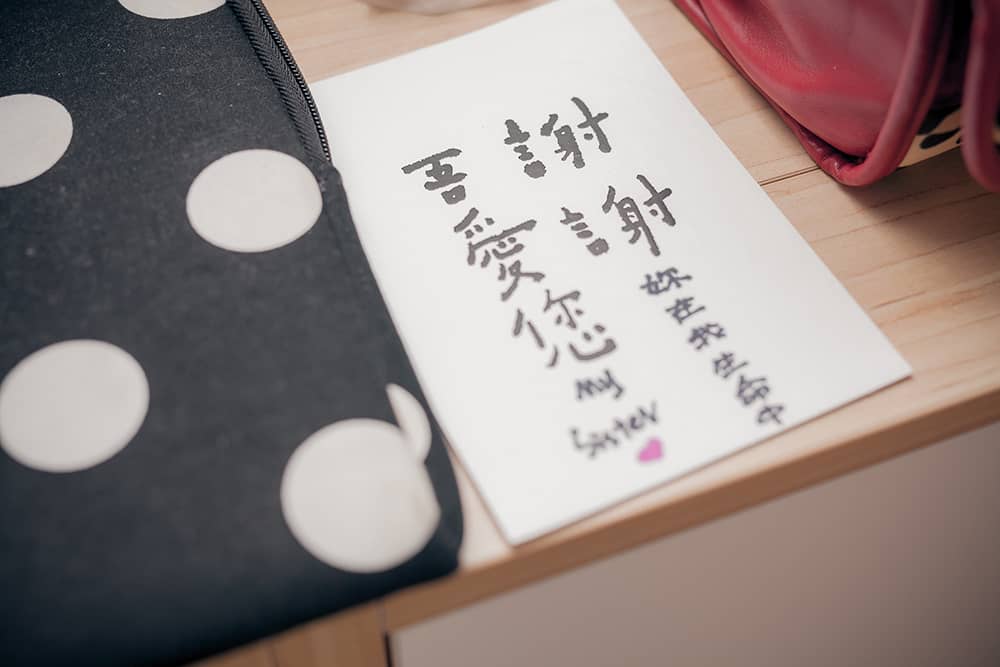 謝謝
妳在我生命中
吾愛您
my
Sister